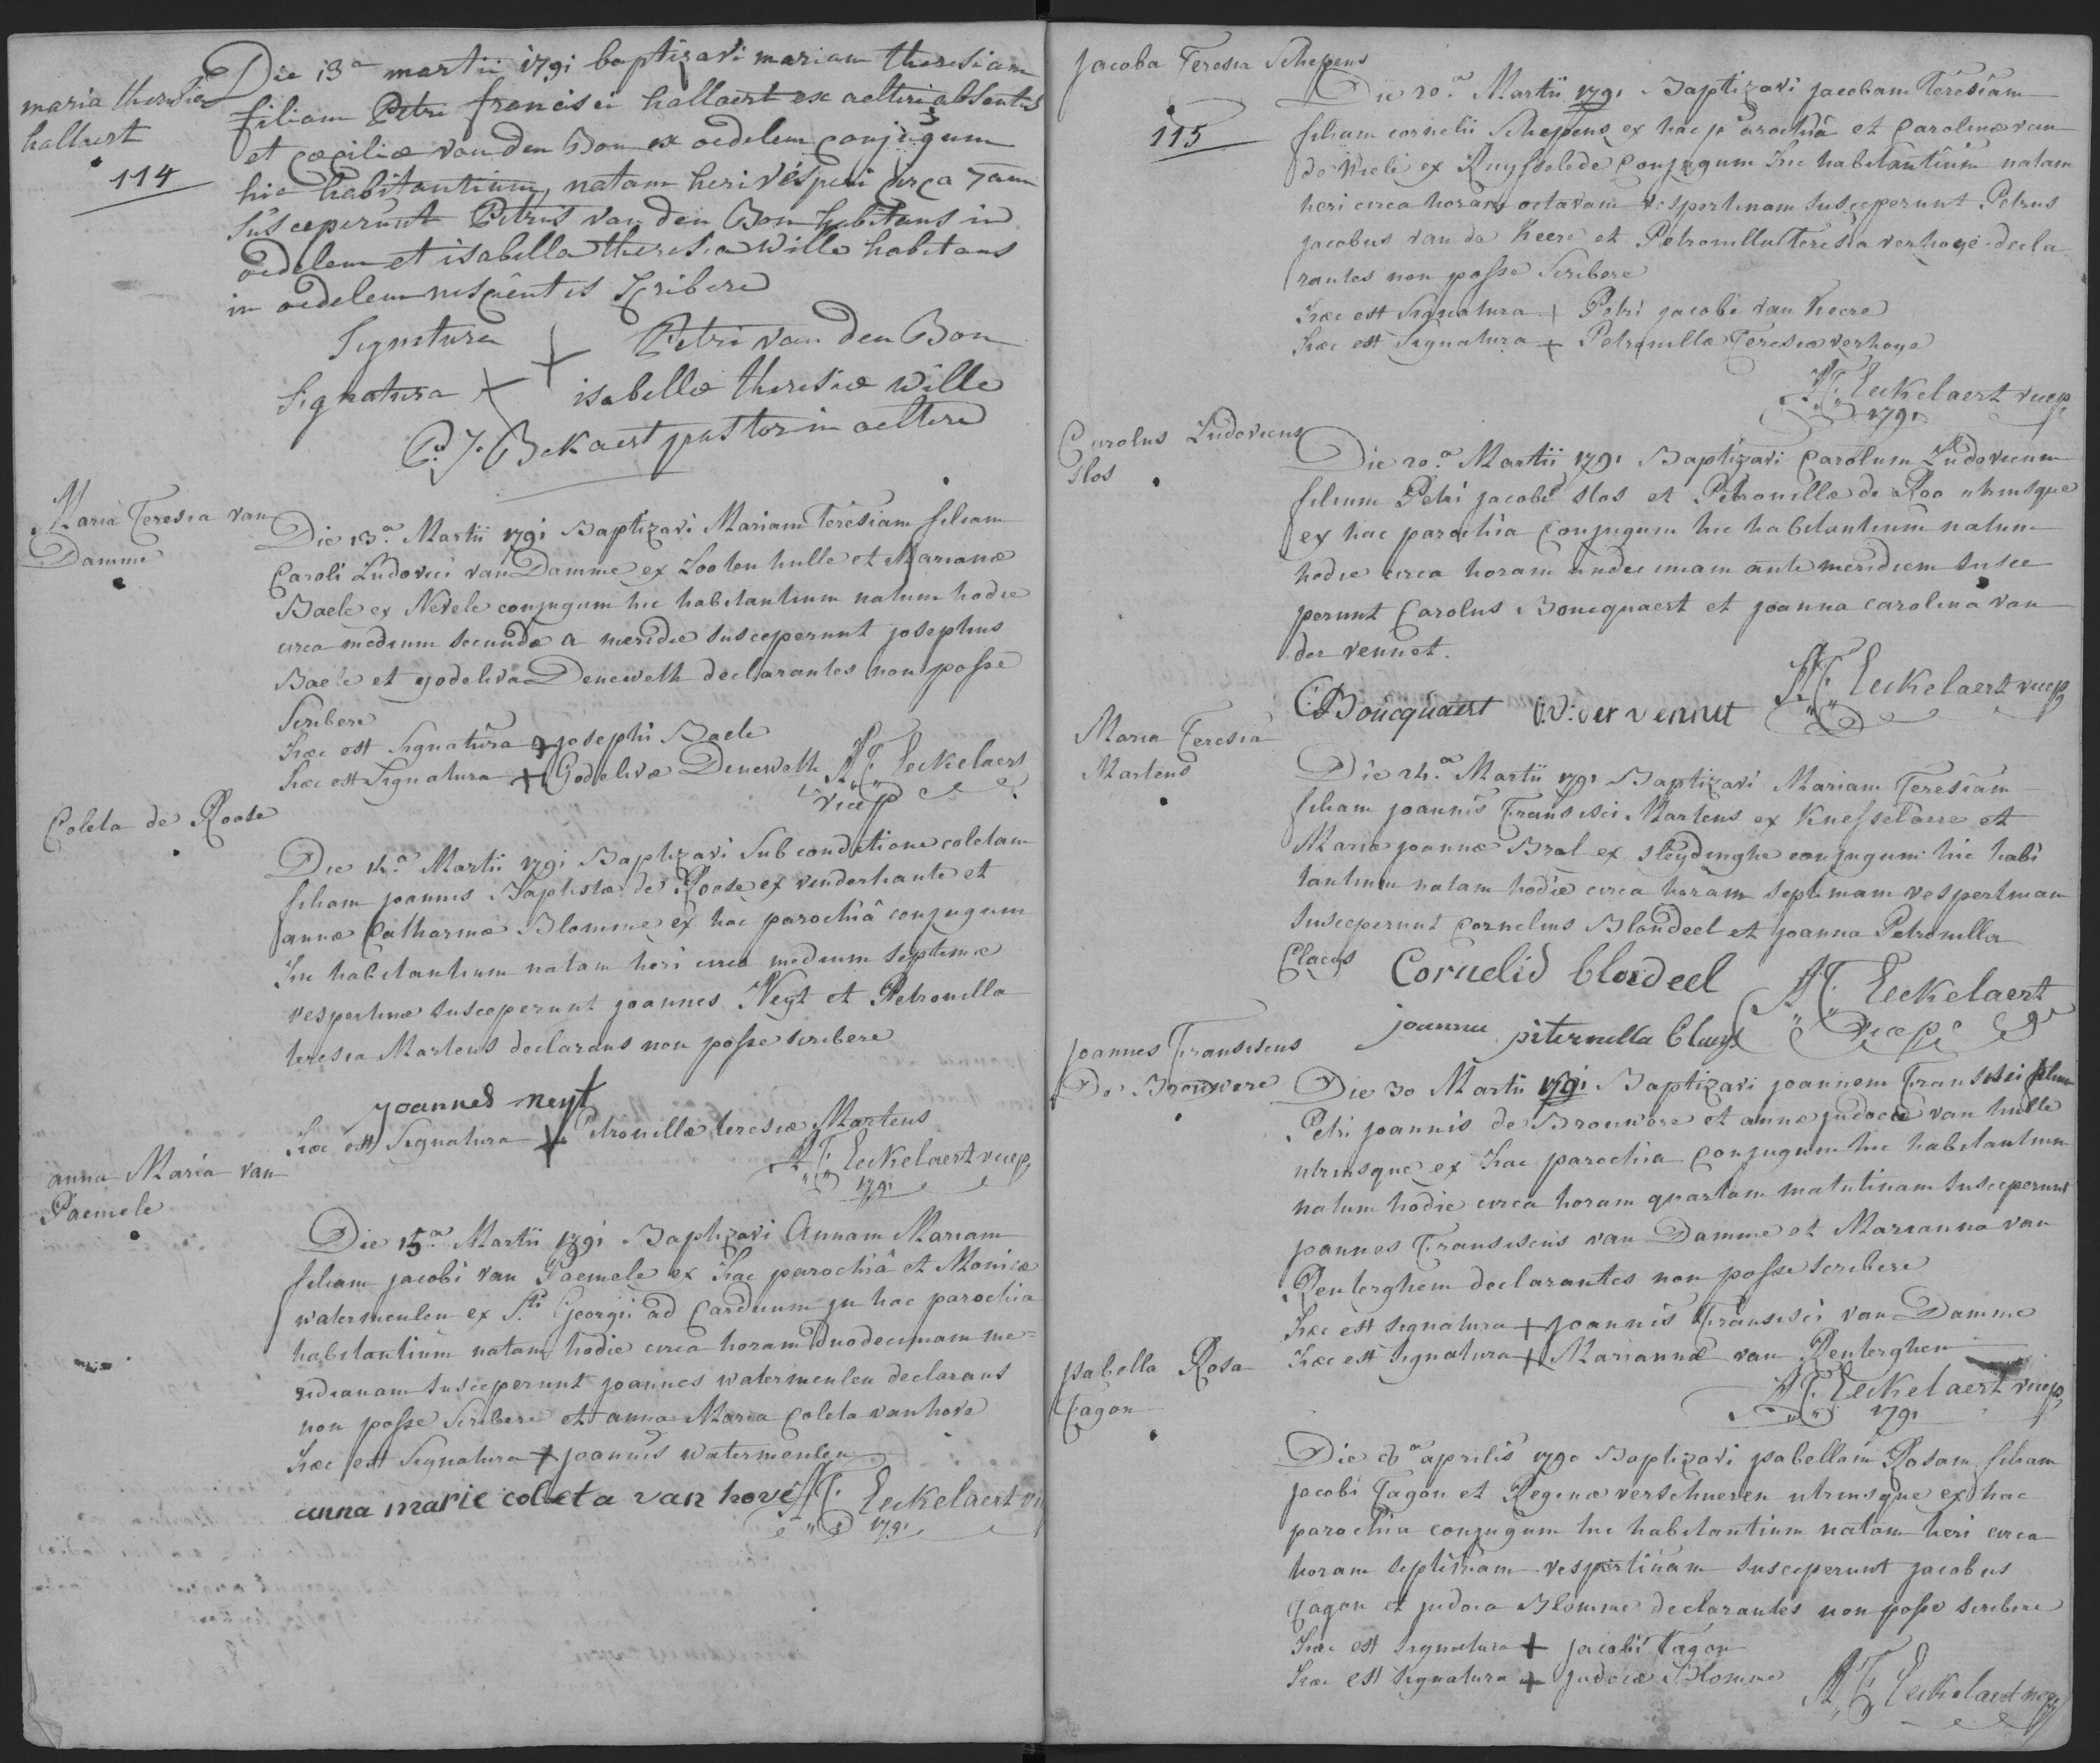 maria theresia
hallaert
114
Die 13a martii 1791 baptizavi mariam theresiam
filiam Petri francisci hallaert ex aeltre absentis
et cæciliæ van den Bon ex oedelem conjugum
hic habitantium, natam heri vesperi circa 7am
susceperunt Petrus van den Bon habitans in
oedelem et isabella theresia wille habitans
in oedelem nescientes scribere
Signatura + Petri van den Bon
Signatura + isabellæ theresiæ wille
P. J. Bekaert pastor in aeltere
Maria Teresia van
Damme
Die 13a Martii 1791 Baptizavi Mariam Teresiam filiam
Caroli Ludovici van Damme ex Zooten hulle et Marianæ
Baele ex Nevele conjugum hic habitantium natum hodie
circa medium secundæ a meridie susceperunt josephus
Baele et godeliva Deneweth declarantes non posse
scribere
Hæc est signatura + josephi Baele
Hæc est signatura + Godelivæ Deneweth A F Eeckelaert
vicep
Coleta de Roose
Die 14.a Martii 1791 Baptizavi sub conditione coletam
filiam joannis Baptistæ de Roose ex vinderhaute et
annæ Catharinæ Blomme ex hac parochiâ conjugum
hic habitantium natam heri circa medium septimæ
vespertinæ susceperunt joannes Neyt et Petronilla
teresia Martens declarans non posse scribere
joannes neyt
Hæc est signatura + Petronillæ teresiæ Martens
A F Eeckelaert vicep
1791
anna Maria van
Paemele
Die 15.a Martii 1791 Baptizavi Annam Mariam
filiam jacobi van Paemele ex hac parochiâ et Monicæ
watermeulen ex Sti Georgii ad Carduum in hac parochia
habitantium natam hodie circa horam duodecimam me=
ridianam susceperunt joannes watermeulen declarans
non posse scribere et anna Maria Coleta van hove
Hæc est signatura + joannis watermeulen
anna marie coleta van hove A F Eeckelaert vi
1791
Jacoba Teresia Schepens
115
Die 20.a Martii 1791 Baptizavi jacobam Teresiam
filiam cornelii Schepens ex hac parochiâ et Carolinæ van
de Niele ex Ruysselede Conjugum hic habitantium natam
heri circa horam octavam vespertinam susceperunt Petrus
jacobus van de Keere et Petronilla Teresia verhoye decla
rantes non posse scribere
Hæc est signatura + Petri jacobi van Keere
Hæc est signatura + Petronillæ Teresiæ verhoye
A F Eeckelaert vicep
1791
Carolus Ludovicus
Slos
Die 20.a Martii 1791 Baptizavi Carolum Ludovicum
filium Petri jacobi Slos et Petronillæ de Roo utriusque
ex hac parochia Conjugum hic habitantium natum
hodie circa horam undecimam ante meridiem susce
perunt Carolus Boucquaert et joanna carolina van
der vennet.
C Boucquaert V. der vennet A F Eeckelaert vicep
Maria Teresia
Martens
Die 24.a Martii 1791 Baptizavi Mariam Teresiam
filiam joannis Francisci Martens ex Knesselaere et
Mariæ joannæ Bral ex sleydinghe conjugum hic habi
tantium natam hodie circa horam septimam vespertinam
susceperunt Cornelius Blondeel et joanna Petronilla
Claeys Cornelis bloedeel A F Eeckelaert
joanna piternella Claeys vicep
joannes Franciscus
De Brouwere
Die 30 Martii 1791 Baptizavi joannem Francisci filium
Petri joannis de Brouwere et annæ judocæ van hulle
utriusque ex hac parochia Conjugum hic habitantium
natum hodie circa horam quartam matutinam susceperunt
joannes Franciscus van Damme et Marianna van
Renterghem declarantes non posse scribere
Hæc est signatura + joannis Francisci van Damme
Hæc est signatura + Mariannæ van Renterghem
A F Eeckelaert vicep
1791
ysabella Rosa
Tagon
Die 6a aprilis 1790 Baptizavi ysabellam Rosam filiam
jacobi Tagon et Reginæ verschueren utriusque ex hac
parochia conjugum hic habitantium natam heri circa
horam septimam vespertinam susceperunt jacobus
Tagon et judoca Blomme declarantes non posse scribere
Hæc est signatura + jacobi Tagon
Hæc est signatura + judocæ Blomme A F Eeckelaert vicep